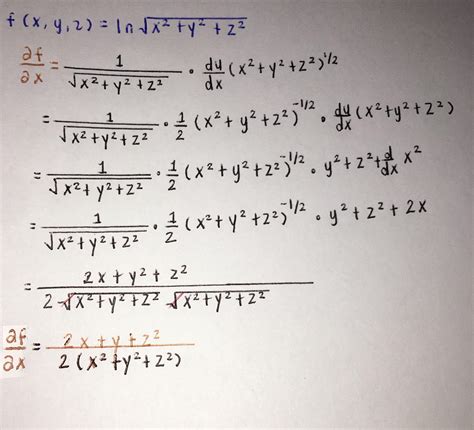 f(x,y,z) = ln √x² + y² + z²
∂f/∂x = 1/√x² + y² + z² · du/dx (x² + y² + z²)^1/2
= 1/√x² + y² + z² · 1/2 (x² + y² + z²)^-1/2 · du/dx (x² + y² + z²)
= 1/√x² + y² + z² · 1/2 (x² + y² + z²)^-1/2 · y² + z² + d/dx x²
= 1/√x² + y² + z² · 1/2 (x² + y² + z²)^-1/2 · y² + z² + 2x
= 2x + y² + z² / 2 √x² + y² + z² √x² + y² + z²
∂f/∂x = 2x + y + z² / 2 (x² + y² + z²)